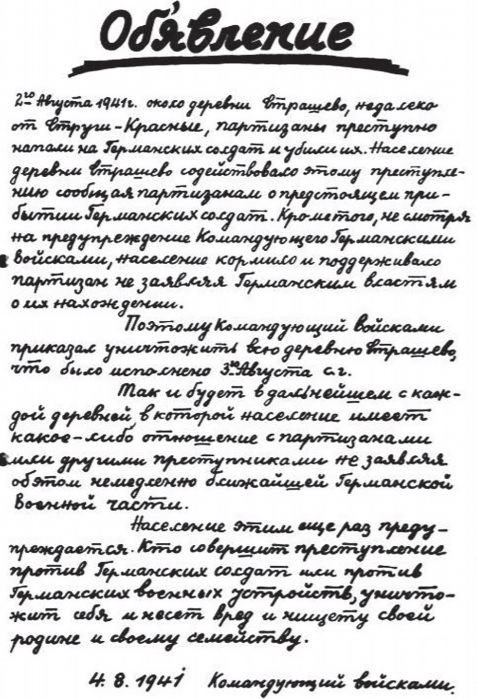 Объявление
2го Августа 1941г. около деревни Страшево, недалеко
от Струги-Красные, партизаны преступно
напали на Германских солдат и убили их. Население
деревни Страшево содействовало этому преступле-
нию сообщая партизанам о предстоящем при-
бытии Германских солдат. Кроме того, не смотря
на предупреждение Командующего Германскими
Войсками, население кормило и поддерживало
партизан не заявляя Германским властям
о их нахождении.
Поэтому Командующий Войсками
приказал уничтожить всю деревню Страшево,
что было исполнено 3го Августа с.г.
Так и будет в дальнейшем с каж-
дой деревней, в которой население имеет
какое-либо отношение с партизанами
или другими преступниками не заявляя
об этом немедленно ближайшей Германской
Военной части.
Население этим еще раз преду-
преждается. Кто совершит преступление
против Германских солдат или против
Германских военных устройств, уничто-
жит себя и несет вред и нищету своей
родине и своему семейству.
4.8.1941 Командующий войсками.